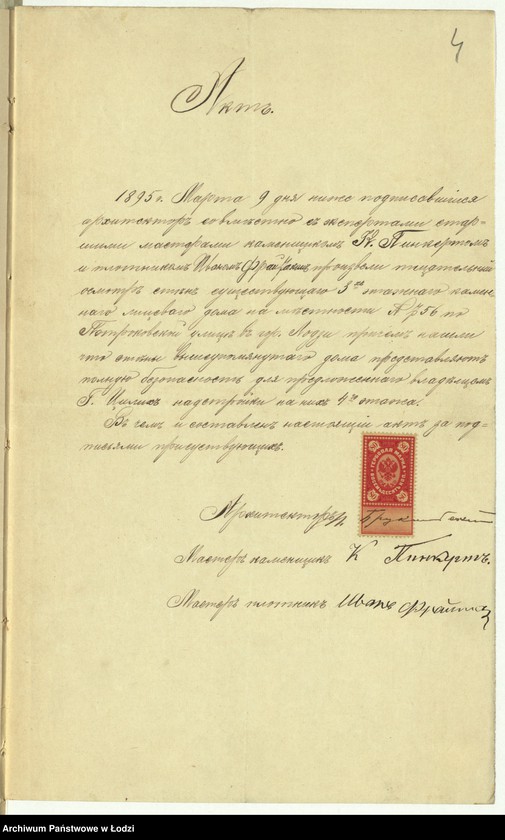 4
Актъ.
1895 г. Марта 9 дня ниже подписавшійся
архитекторъ совмѣстно съ экспертами стар-
шими мастерами каменщикомъ К. Пинкертомъ
и плотникомъ Иваномъ произвели тщательный
осмотръ стѣнъ существующаго 3го этажнаго камен-
наго лицевого дома на мѣстности № 756 по
Петроковской улицѣ въ гор. Лодзи причемъ нашли
что стѣны вышеупомянутаго дома представляютъ
полную безопасность для предложеннаго владѣльцомъ
Г. надстройки на нихъ 4го этажа.
Въ чемъ и составленъ настоящій актъ за под-
письями присутствующихъ.
Архитекторъ
Мастеръ каменщикъ К Пинкертъ.
Мастеръ плотникъ Иванъ
Archiwum Państwowe w Łodzi